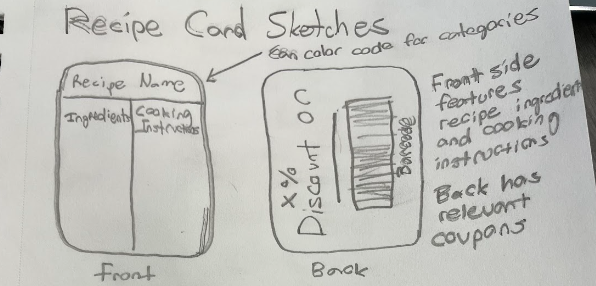 Recipe Card Sketches
Can color code for categories
Recipe Name
Ingredients
Cooking
Instructions
Front
X%
Discount OC
Barcode
Back
Front side
features
recipe ingredients
and cooking
instructions
Back has
relevant
coupans